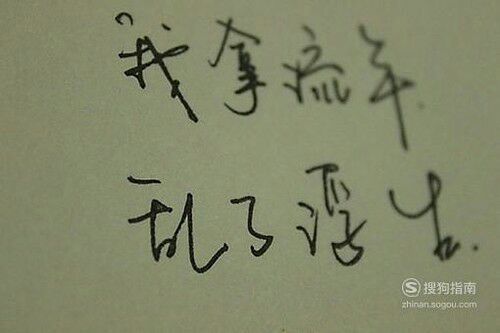 "我拿流年
乱了浮生.
搜狗指南
zhinan.sogou.com